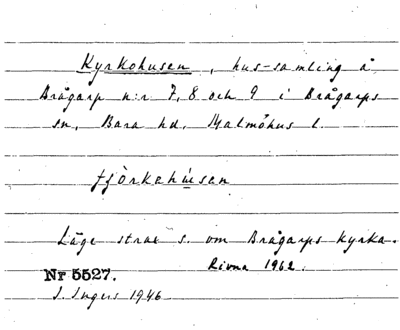 Kyrkohusen, hus-samling å
Brågarp n:r 7, 8 och 9 i Brågarps
sn, Bara hd, Malmöhus l.
Läge strax s. om Brågarps kyrka.
Rivna 1962.
Nr 5527.
I. Ingers 1946